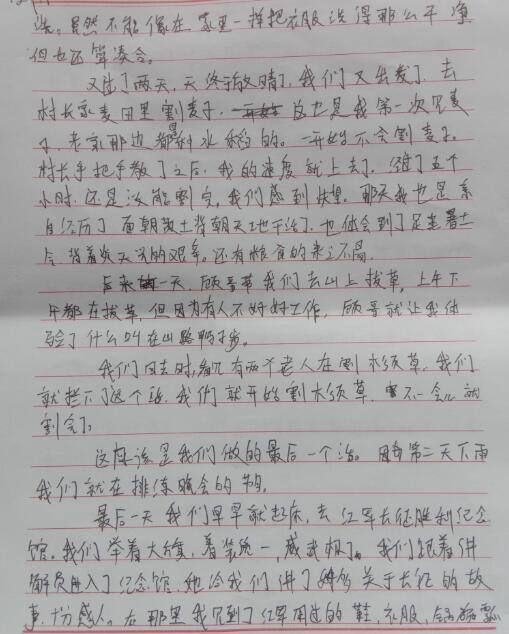 洗。虽然不能像在家里一样把衣服洗得那么干净
但也还算凑合。
又过了两天，天终于放晴了，我们又出发了，去
村长家麦田里割麦子，这也是我第一次见麦
子，老家那边都是种水稻的。一开始不会割麦子。
村长手把手教了之后，我的速度就上去了，经了五个
小时，还是没能割完，我们感到快。那天我也是亲
自经历了面朝黄土背朝天地干活了，也体会到了足蒸暑土
气，背灼炎天光的艰辛。还有粮食的来之不易。
后来一天，顾哥带我们去山上拔草，上午下
午都在拔草，但因为有人不好好工作，顾哥就让我体
验了什么叫在山路鸭子步。
我们回去时，看见有两个老人在割木须草，我们
就拦下了这个活，我们就开始割木须草，不一会儿就
割完了。
这应该是我们做的最后一个活。因为第二天下雨
我们就在排练晚会的节目。
最后一天我们早早就起床，去红军长征胜利纪念
馆。我们举着大旗，着装统一，威武极了。我们跟着讲
解员进入了纪念馆，她给我们讲了许多关于长征的故
事，十分感人。在那里我见到了红军用过的鞋，衣服，